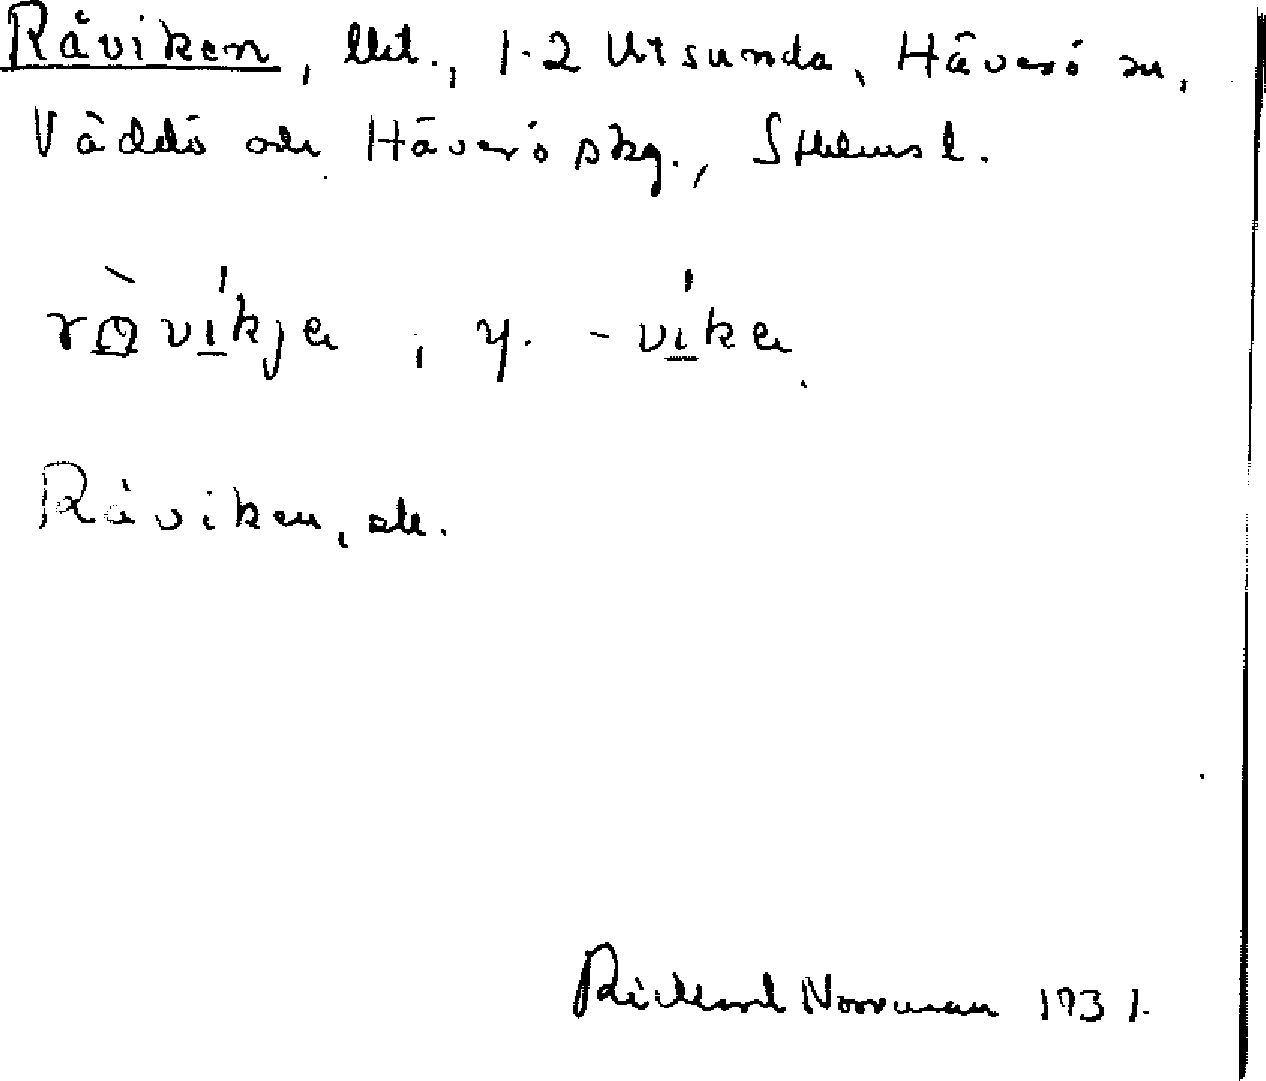 Råviken, llt., 1-2 Utsunda, Häverö sn,
Väddö och Häverö skg., Sthlms l.
rò̱ví̱kja, y. -ví̱ka
Råviken, ek.
Rickard Norrman 1931.